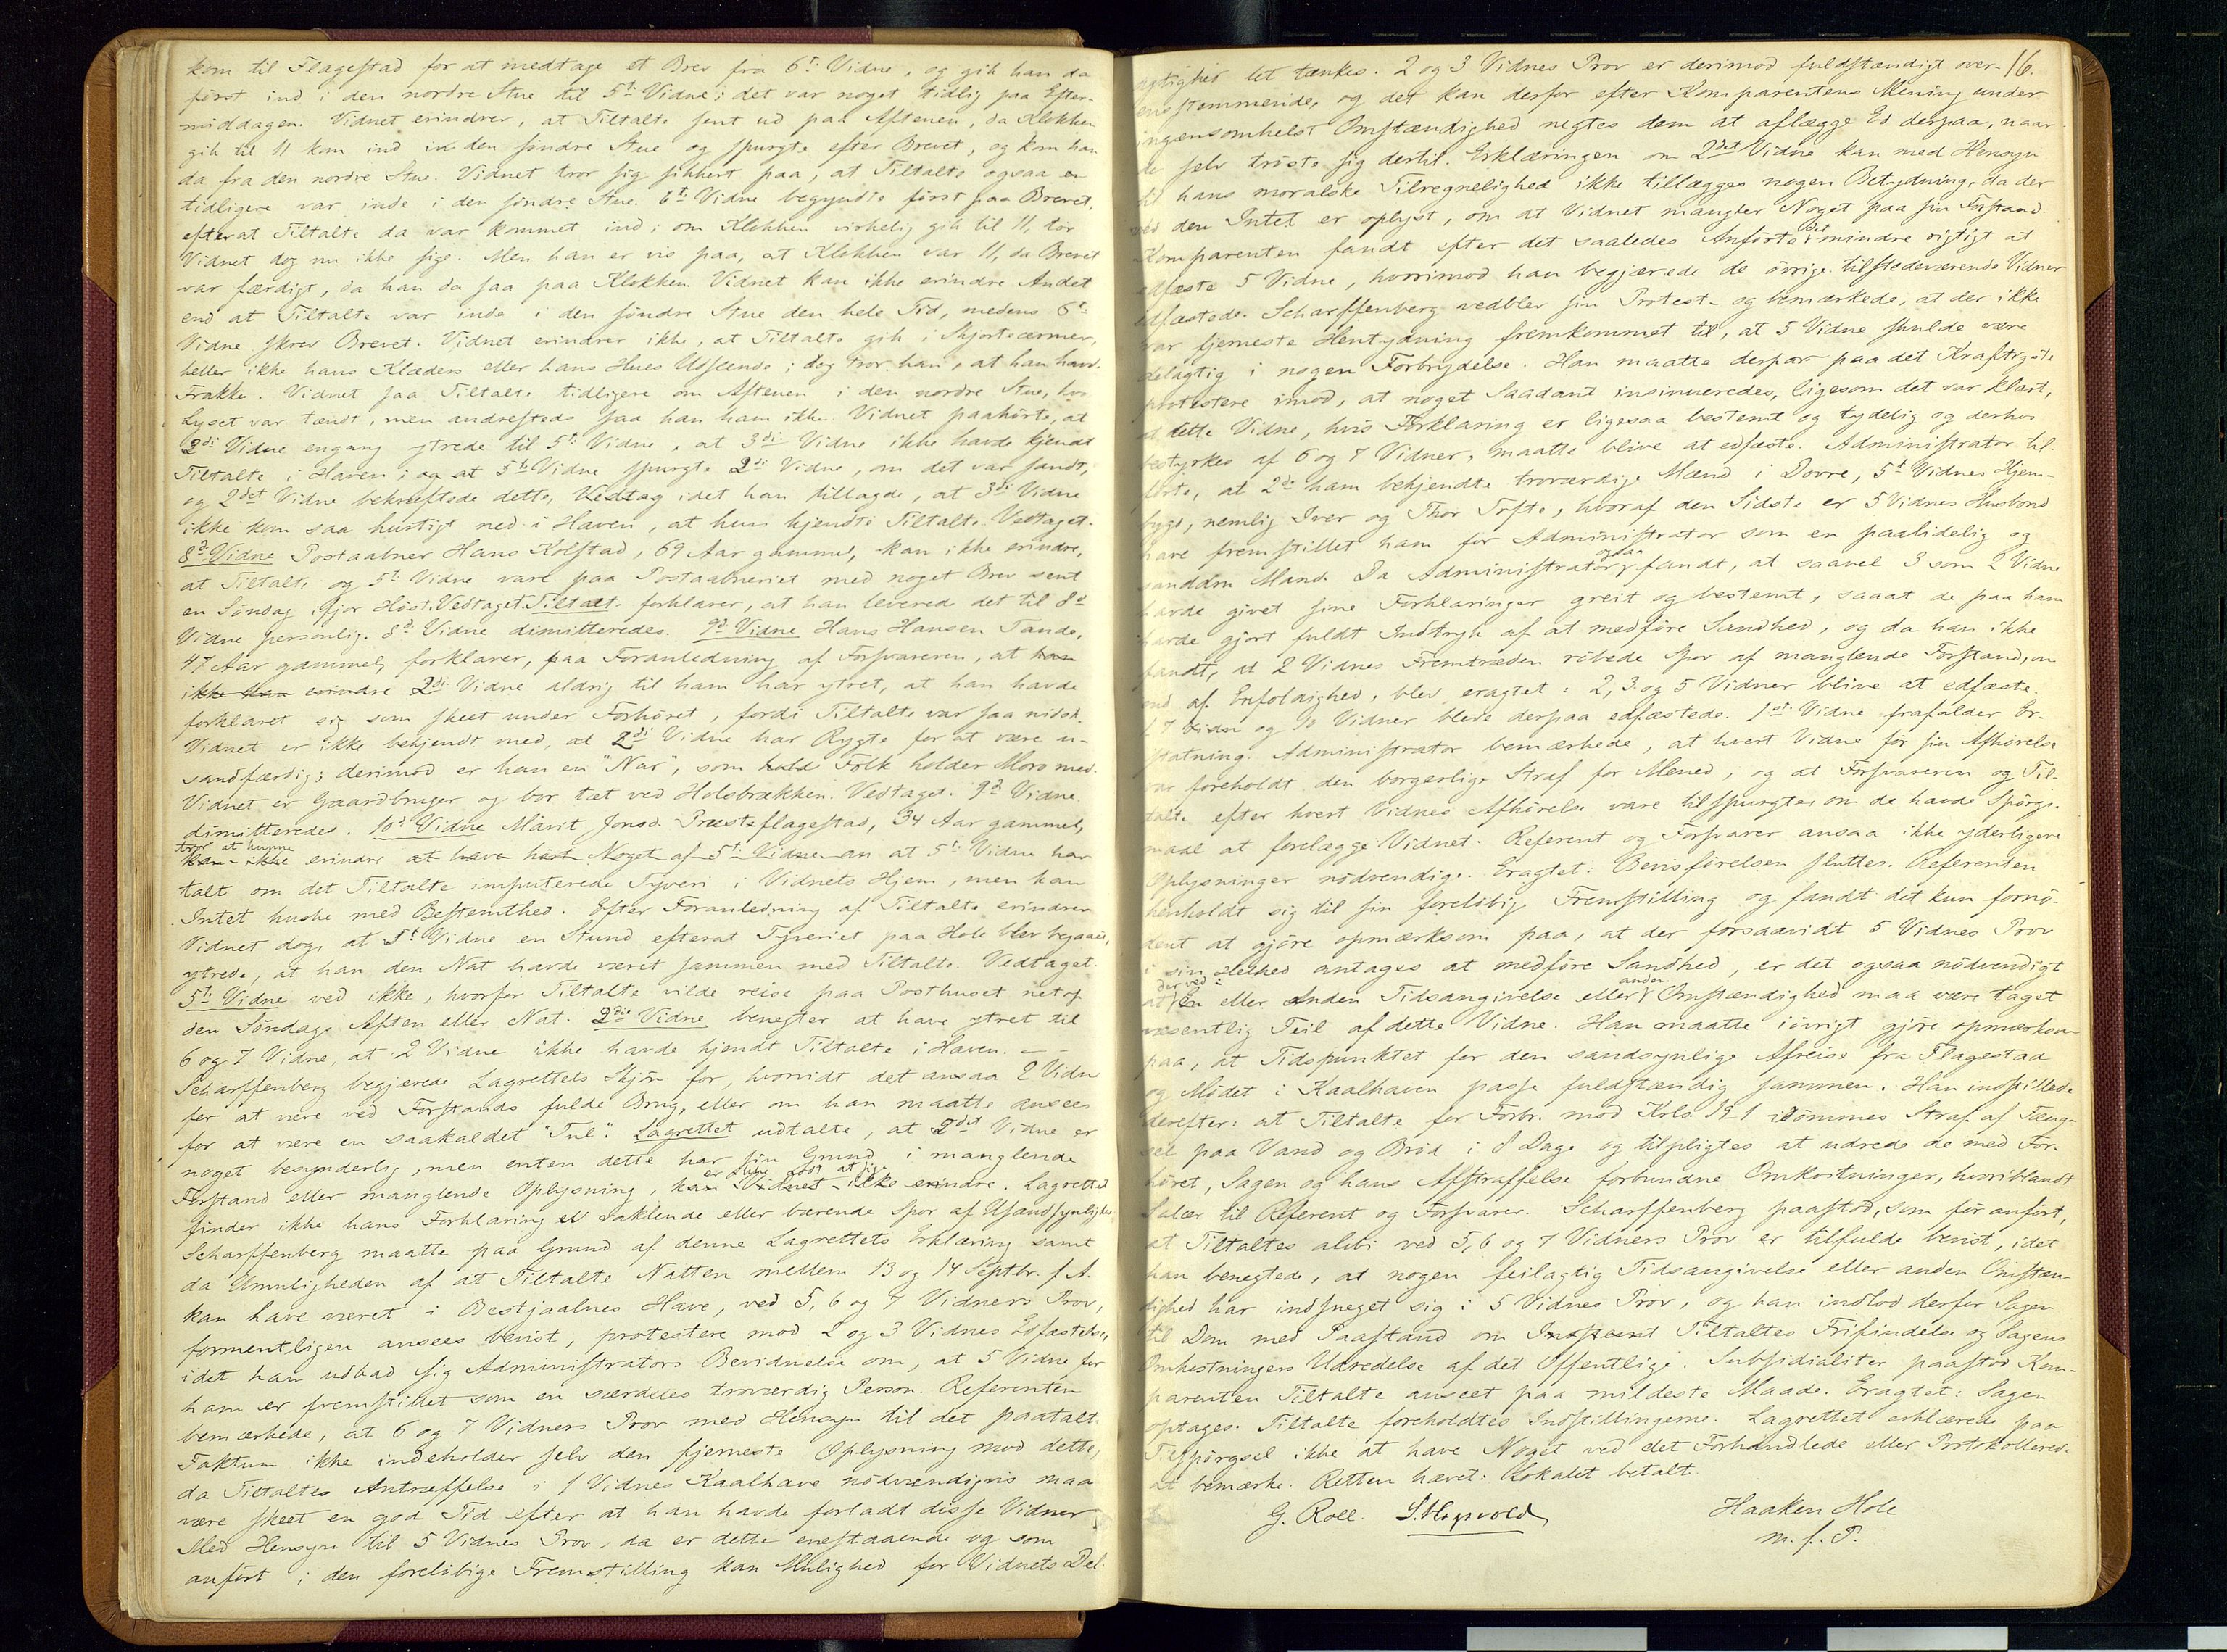 kom til Flagestad for at medtage et Brev fra 6te Vidne, og gik han da
først ind i den nordre Stue til 5te Vidne; det var noget tidlig paa Efter-
middagen. Vidnet erindrer, at Tiltalte sent ud paa Aftenen, da Klokken
gik til 11 kom ind i den søndre Stue og spurgte efter Brevet, og kom han
da fra den nordre Stue. Vidnet tror sig sikkert paa, at Tiltalte ogsaa en
tidligere var inde i den søndre Stue. 6te Vidne begyndte først paa Brevet,
efterat Tiltalte da var kommet ind; om Klokken virkelig gik til 11, tør
Vidnet dog nu ikke sige. Men han er vis paa, at Klokken var 11, da Brevet
var færdigt, da han da saa paa Klokken. Vidnet kan ikke erindre Andet
end at Tiltalte var inde i den søndre Stue den hele Tid, medens 6te
Vidne skrev Brevet. Vidnet erindrer ikke, at Tiltalte gik i Skjorteærmer,
heller ikke hans Klæders eller hans Hues Udseende; dog tror han, at han havde
Frakke. Vidnet saa Tiltalte tidligere om Aftenen i den nordre Stue, hvor
Lyset var tændt, men andresteds saa han ham ikke. Vidnet paahørte, at
2det Vidne engang ytrede til 5te Vidne, at 3die Vidne ikke havde kjendt
Tiltalte i Haven; og at 5te Vidne spurgte 2det Vidne, om det var sandt,
og 2det Vidne bekræftede dette, Vedtag idet han tillagde, at 3die Vidne
ikke kom saa hurtigt ned i Haven, at hun kjendte Tiltalte. Vedtaget.
8de Vidne Postaabner Hans Kolstad, 69 Aar gammel, kan ikke erindre,
at Tiltalte og 5te Vidne vare paa Postaabneriet med noget Brev sent
en Søndag ifjor Høst. Vedtaget. Tiltalte forklarer, at han leverede det til 8de
Vidne personlig. 8de Vidne dimitteredes. 9de Vidne Hans Hansen Tande,
47 Aar gammel, forklarer, paa Foranledning af Forsvareren, at han
ikke kan erindre 2det Vidne aldrig til ham har ytret, at han havde
forklaret sig som skeet under Forhøret, fordi Tiltalte var saa nidsk.
Vidnet er ikke bekjendt med, at 2det Vidne har Rygte for at være u-
sandfærdig; derimod er han en "Nar", som hold Folk holder Moro med.
Vidnet er Gaardbruger og bor tæt ved Holsbrækken. Vedtaget. 9de Vidne
dimitteredes. 10de Vidne Marit Jonsd. Præsteflagestad, 34 Aar gammel,
tror at kunne
kan ikke erindre at have hørt Noget af 5te Vidne an at 5te Vidne har
talt om det Tiltalte imputerede Tyveri i Vidnets Hjem, men kan
Intet huske med Bestemthed. Efter Foranledning af Tiltalte erindrer
Vidnet dog, at 5te Vidne en Stund efterat Tyveriet paa Hole blev begaaet,
ytrede, at han den Nat havde været sammen med Tiltalte. Vedtaget.
5te Vidne ved ikke, hvorfor Tiltalte vilde reise paa Posthuset netop
den Søndags Aften eller Nat. 2det Vidne benegter at have ytret til
6 og 7 Vidne, at 2 Vidne ikke havde kjendt Tiltalte i Haven. —
Scharffenberg begjærede Lagrettets Skjøn for, hvorvidt det ansaa 2 Vidne
for at være ved Forstands fulde Brug, eller om han maatte ansees
for at være en saakaldet "Tul". Lagrettet udtalte, at 2det Vidne er
noget besynderlig, men enten dette har sin Grund i manglende
er ikke godt at sige
Forstand eller manglende Oplysning, kan Vidnet ikke erindre. Lagrettet
finder ikke hans Forklaring er vaklende eller bærende Spor af Usandsynlighed.
Scharffenberg maatte paa Grund af denne Lagrettets Erklæring samt
da Umuligheden af at Tiltalte Natten mellem 13 og 14 Septbr. f. A.
kan have været i Bestjaalnes Have, ved 5, 6 og 7 Vidners Prov,
formentligen ansees bevist, protestere mod 2 og 3 Vidnes Edfæstelse,
idet han udbad sig Administrators Bevidnelse om, at 5 Vidne for
ham er fremstillet som en særdeles troværdig Person. Referenten
bemærkede, at 6 og 7 Vidners Prov med Hensyn til det paatalte
Faktum ikke indeholder selv den fjerneste Oplysning mod dette,
da Tiltaltes Antræffelse i 1 Vidnes Kaalhave nødvendigvis maa
være skeet en god Tid efter at han havde forladt disse Vidner
Med Hensyn til 5 Vidnes Prov, da er dette enestaaende og som
anført i den foreløbige Fremstilling kan Mulighed for Vidnets Del-
16.
agtighed let tænkes. 2 og 3 Vidnes Prov er derimod fuldstændigt over-
ensstemmende, og det kan derfor efter Komparentens Mening under
ingensomhelst Omstændighed negtes dem at aflægge Ed derpaa, naar
de selv trøste sig dertil. Erklæringen om 2det Vidne kan med Hensyn
til hans moralske Tilregnelighed ikke tillægges nogen Betydning, da der
ved den Intet er oplyst, om at Vidnet mangler Noget paa sin Forstand.
Komparenten fandt efter det saaledes Anførte det mindre rigtigt at
edfæste 5 Vidne, hvorimod han begjærede de øvrige tilstedeværende Vidner
edfæstede. Scharffenberg vedblev sin Protest og bemærkede, at der ikke
var fjerneste Hentydning fremkommet til, at 5 Vidne skulde være
delagtig i nogen Forbrydelse. Han maatte derfor paa det Kraftigste
protestere imod, at noget Saadant insinueredes, ligesom det var klart,
at dette Vidne, hvis Forklaring er ligesaa bestemt og tydelig og derhos
bestyrkes af 6 og 7 Vidner, maatte blive at edfæste. Administrator til-
førte, at 2de ham bekjendte troværdige Mænd i Dovre, 5te Vidnes Hjem-
bygd, nemlig Iver og Thor Tofte, hvoraf den Sidste er 5 Vidnes Husbond
have fremstillet ham for Administrator som en paalidelig og
sanddru Mand. Da Administrator ogsaa fandt, at saavel 3 som 2 Vidne
havde givet sine Forklaringer greit og bestemt, saaat de paa ham
havde gjort fuldt Indtryk af at medføre Sandhed, og da han ikke
fandt, at 2 Vidnes Fremtræden røbede Spor af manglende Forstand, om
end af Enfoldighed, blev eragtet: 2, 3 og 5 Vidner blive at edfæste.
6, 7 Vidn og 10 Vidner bleve derpaa edfæstede. 1ste Vidne frafalder Er-
statning. Administrator bemærkede, at hvert Vidne før sin Afhørelse
var foreholdt den borgerlige Straf for Mened, og at Forsvareren og Til-
talte efter hvert Vidnes Afhørelse vare tilspurgte, om de havde Spørgs-
maal at forelægge Vidnet. Referent og Forsvarer ansaa ikke yderligere
Oplysninger nødvendige. Eragtet: Bevisførelsen sluttes. Referenten
henholdt sig til sin foreløbige Fremstilling og fandt det kun fornø-
dent at gjøre opmærksom paa, at der forsaavidt 5 Vidnes Prov
i sin Helhed antages at medføre Sandhed, er det ogsaa nødvendigt
derved anden
at En eller Anden Tidsangivelse eller Omstændighed maa være taget
væsentlig Feil af dette Vidne. Han maatte iøvrigt gjøre opmærksom
paa, at Tidspunktet for den sandsynlige Afreise fra Flagestad
og Mødet i Kaalhaven passe fuldstændig sammen. Han indstillede
derefter: at Tiltalte for Forbr. mod Krls. 19 1 idømmes Straf af Fæng-
sel paa Vand og Brød i 8 Dage og tilpligtes at udrede de med For-
høret, Sagen og hans Afstraffelse forbundne Omkostninger, hvoriblandt
Salær til Referent og Forsvarer. Scharffenberg paastod, som før anført,
at Tiltaltes alibi ved 5, 6 og 7 Vidners Prov er tilfulde bevist, idet
han benegtede, at nogen feilagtig Tidsangivelse eller anden Omstæn-
dighed har indsneget sig i 5 Vidnes Prov, og han indlod derfor Sagen
til Dom med Paastand om Tiltaltes Frifindelse og Sagens
Omkostningers Udredelse af det Offentlige. Subsidialiter paastod Kom-
parenten Tiltalte anseet paa mildeste Maade. Eragtet: Sagen
optages. Tiltalte foreholdtes Indstillingerne. Lagrettet erklærede paa
Tilspørgsel ikke at have Noget ved det Forhandlede eller Protokollerede
at bemærke. Retten hævet. Lokalet betalt.
G. Roll. Haaken Hole
m. f. P.